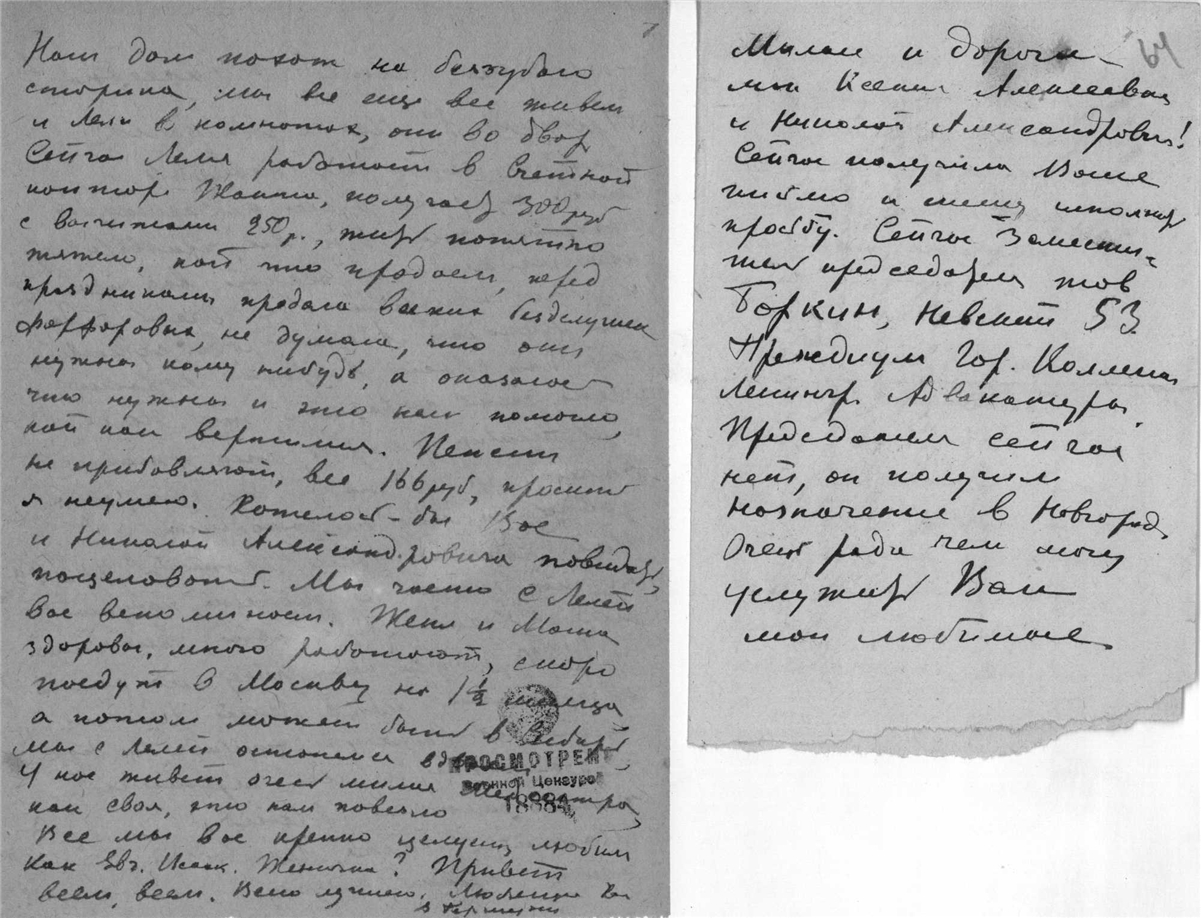 Наш дом похож на беззубого
старика, мы все еще все живем
и Леля в комнатах, они во двор
Сейчас Леля работает в Счетной
конторе Жакта, получает 300 руб
с вычитами 250 р., жить понятно
тяжело, кой что продаем, перед
праздниками продала всякие безделушки
фарфоровые, не думала, что они
нужны кому нибудь, а оказалось
что нужны и это нам помогло,
кой как вертимся. Пенсии
не прибавляют, все 166 руб, просить
я не умею. Хотелось-бы Вас
и Николая Александровича повидать,
поцеловать. Мы часто с Лелей
вас вспоминаем. Женя и Маша
здоровы, много работают, скоро
поедут в Москву на 1½ месяца
а потом может быть в
Мы с Лелей останемся
У нас живет очень милая
как своя, это нам повезло
Все мы вас крепко целуем, любим
Как Евг. Исаак. Женечка? Привет
всем, всем. Всего лучшего.
7
ПРОСМОТРЕНО
Военной Цензурой
Милые и дороги-
мои Ксения Алексеевна
и Николай Александрович!
Сейчас получила Ваше
письмо и спешу исполнить
просьбу. Сейчас Замести-
тель председателя тов
Боркин, Невский 53
Президиум Гор. Коллегии
Ленингр. Адвокатуры,
Председателя сейчас
нет, он получил
назначение в Новгород,
Очень рада чем могу
услужить Вам
мои любимые
64